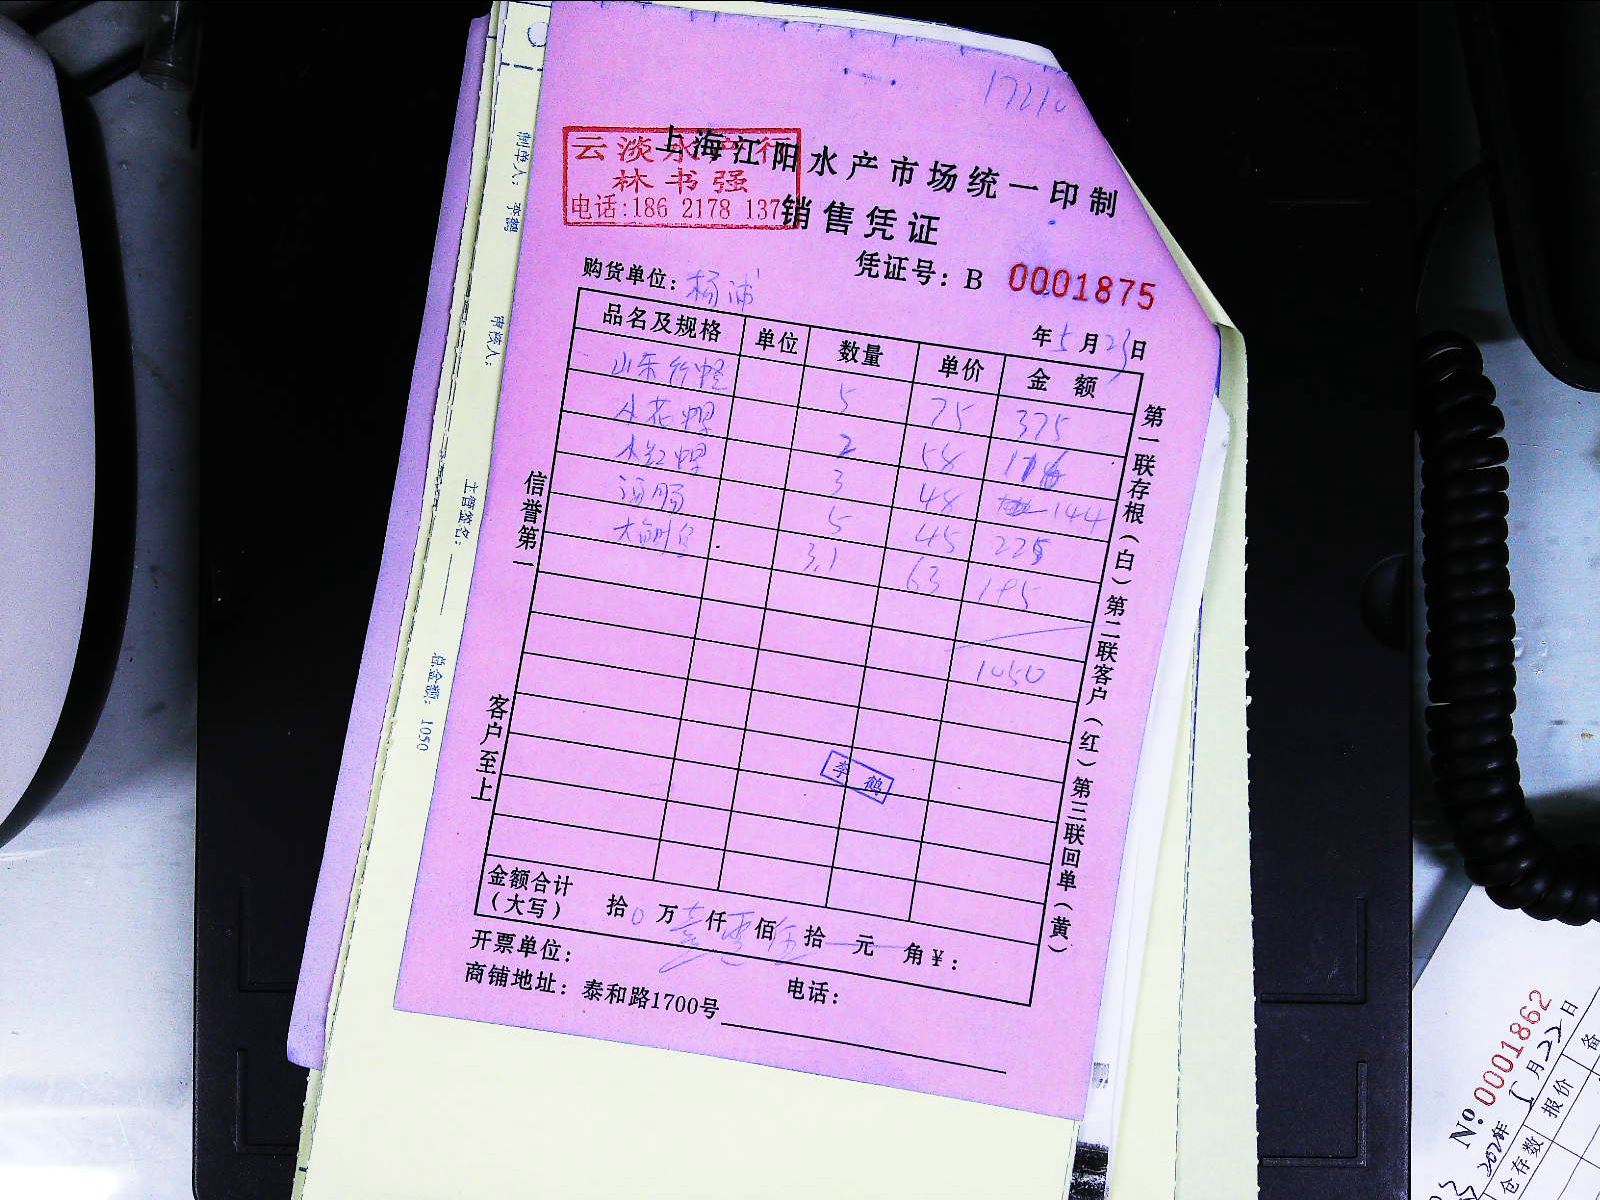 云淡水产行
林书强
电话:186 2178 137
上海江阳水产市场统一印制
销售凭证
凭证号：B 0001875
购货单位：杨浦
年5月23日
品名及规格 单位 数量 单价 金额
山东 5 75 375
小花 2 58 116
3 48 144
5 45 225
3.1 63 195
1050
李鹤
金额合计（大写） 拾0万壹仟零佰伍拾 元 角¥：
开票单位：
电话：
商铺地址：泰和路1700号
信誉第一
客户至上
第一联存根（白）第二联客户（红）第三联回单（黄）
制单人：李鹤
审核人：
主管签名：
总金额：1050
№ 0001862
月22日
仓存数 报价 备